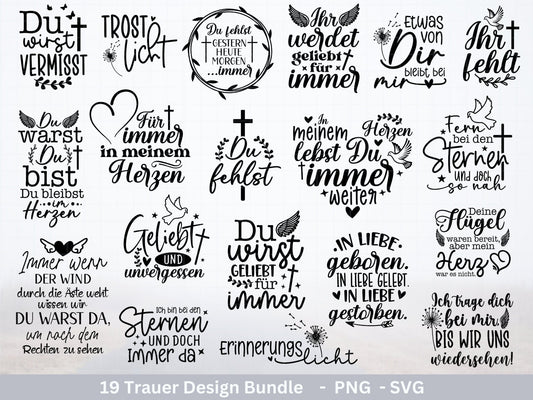 Du
wirst
VERMISST
TROST
licht
Du fehlst
GESTERN
HEUTE
MORGEN
...immer
Ihr
werdet
geliebt
für
immer
ETWAS
VON
Dir
bleibt bei
mir
Ihr
fehlt
Du
warst
Du
bist
Du bleibst
im
Herzen
Für
immer
in meinem
Herzen
Du
fehlst
In
meinem
Herzen
lebst Du
immer
weiter
Fern
bei den
Sternen
und doch
so nah
Immer wenn
DER WIND
durch die Äste weht
wissen wir
DU WARST DA,
um nach dem
Rechten zu sehen
Geliebt
UND
unvergessen
Ich bin bei den
Sternen
UND DOCH
Immer da
Du
wirst
GELIEBT
für
immer
Erinnerungs
licht
IN LIEBE
geboren.
IN LIEBE GELEBT.
IN LIEBE
gestorben.
Deine
Flügel
waren bereit,
aber mein
Herz
war es nicht.
Ich trage dich
bei mir,
BIS WIR UNS
wiedersehen!
19 Trauer Design Bundle - PNG - SVG